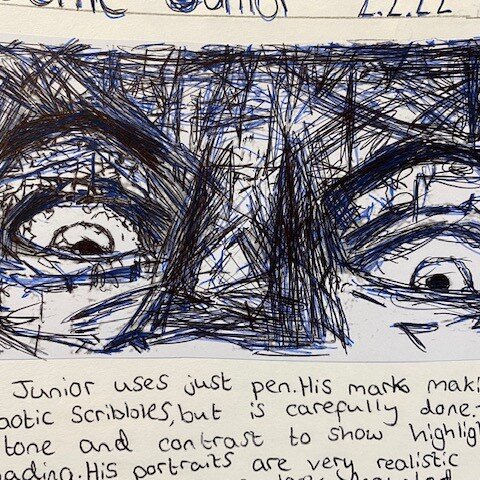 Junior 2.2.22
Junior uses just pen. His marks maki
aotic Scribbles, but is carefully done.
tone and contrast to show highlig
ading. His portraits are very realistic